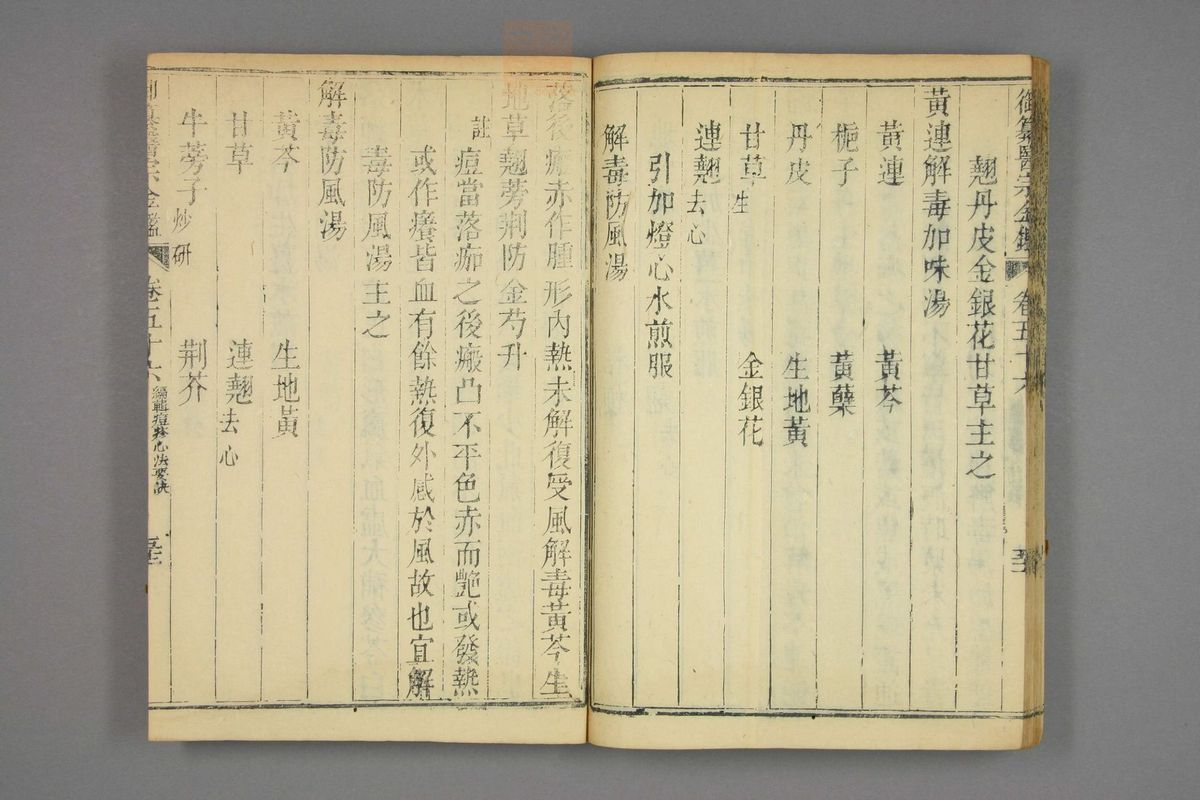 御纂醫宗金鑑 卷五十六
翹丹皮金銀花甘草主之
黃連解毒加味湯
黃連 黃芩
梔子 黃蘗
丹皮 生地黃
甘草生 金銀花
連翹去心
引加燈心水煎服
解毒防風湯
落後瘢赤作腫形內熱未解復受風解毒黃芩生
地草翹蒡荆防金芍升
註
痘當落痂之後瘢凸不平色赤而艶或發熱
或作癢皆血有餘熱復外感於風故也宜解
毒防風湯主之
解毒防風湯
黃芩 生地黃
甘草 連翹去心
牛蒡子炒研 荆芥
御纂醫宗金鑑 卷五十六 編輯痘疹心法要訣